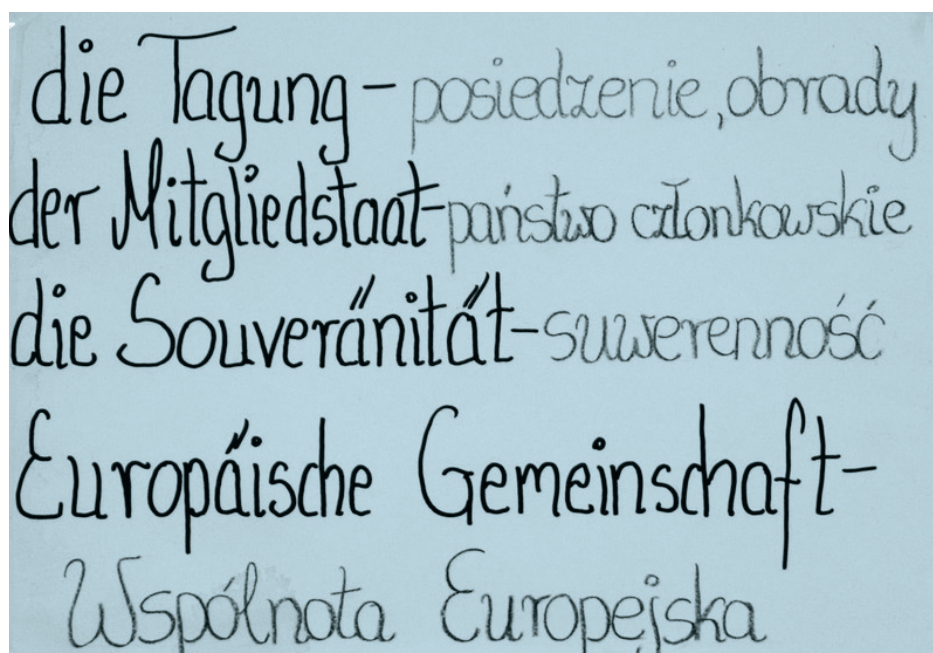 die Tagung - posiedzenie, obrady
der Mitgliedstaat - państwo członkowskie
die Souveränität - suwerenność
Europäische Gemeinschaft -
Wspólnota Europejska